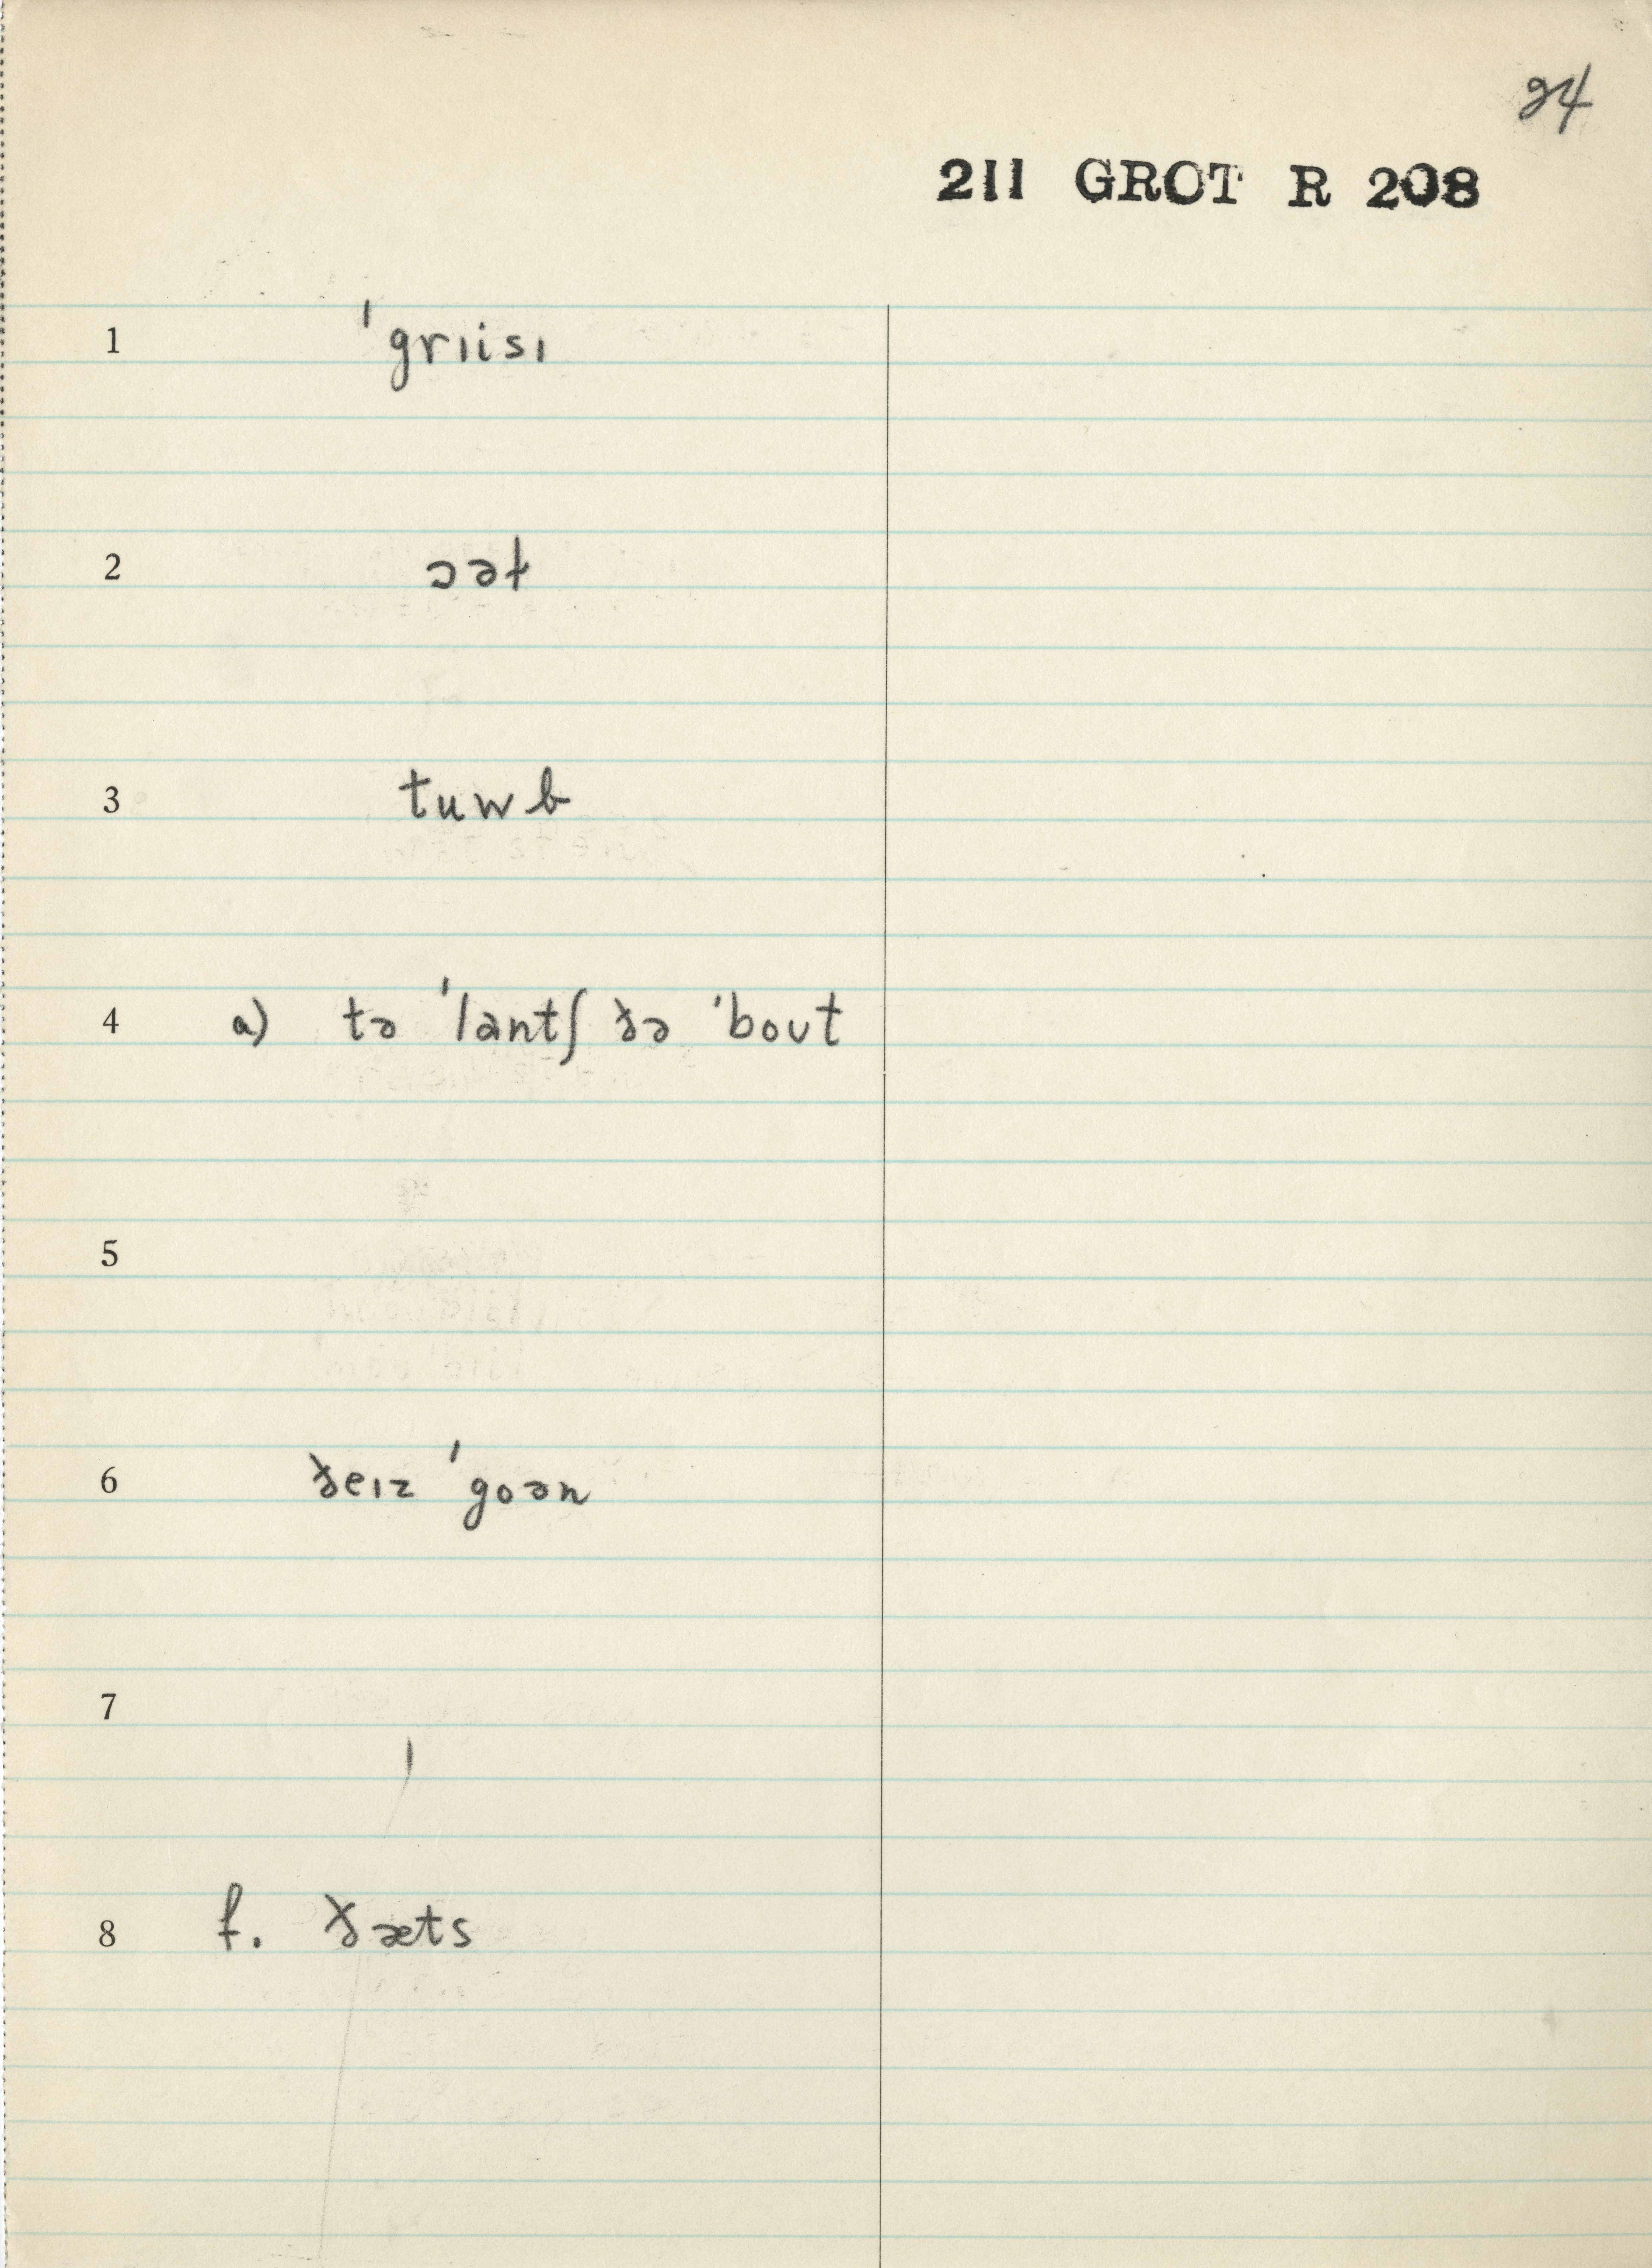 24
211 GROT R 208
1 ˈgrɪisɪ
2 ɔəɫ
3 tuwb
4 a) tə ˈlantʃ ðə ˈbout
5
6 ðeɪz ˈgoən
7
8 f. ðæts